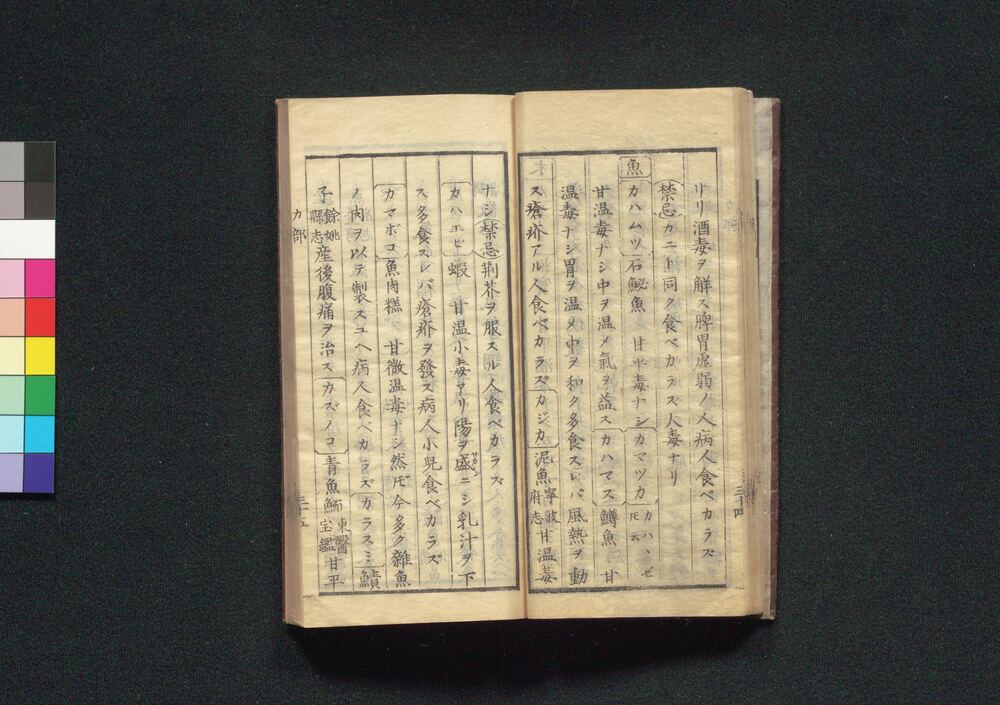 リリ酒毒ヲ解ス脾胃虚弱ノ人病人食ベカラズ
禁忌カニト同ク食ベカラズ大毒ナリ
魚
カハムツ石鮅魚 甘平毒ナシカマツカカハヽゼ
𪜈云
甘温毒ナシ中ヲ温メ氣ヲ益スカハマス鱒魚 甘
温毒ナシ胃ヲ温メ中ヲ和ク多食スレバ風熱ヲ動
ス瘡疥アル人食ベカラズカジカ泥魚寧波府志甘温毒
三十四
ナシ禁忌荆芥ヲ服スル人食ベカラズ
カハエビ蝦 甘温小毒アリ陽ヲ盛ニシ乳汁ヲ下
ス多食スレバ瘡疥ヲ發ス病人小兒食ベカラズ
カマボコ魚肉糕 甘微温毒ナシ然𪜈今多ク雜魚
ノ肉ヲ以テ製スユヘ病人食ベカラズカラスミ鱝
子餘姚縣志産後腹痛ヲ治スカズノコ青魚鮞東醫宝鑑甘平
カ部
三十五